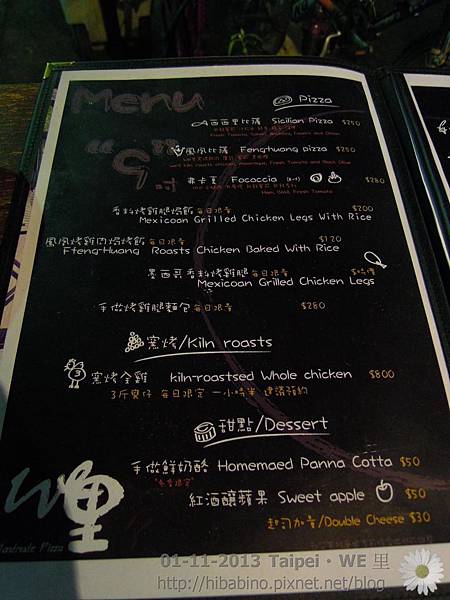 Menu
Pizza
西西里比薩 Sicilian Pizza $250
"9"吋
鳳凰比薩 Fenghuang pizza $250
弗卡夏 Focaccia $280
Ham, Basil, Fresh Tomato
香料烤雞腿焗飯 每日限量 $200
Mexicoan Grilled Chicken Legs With Rice
鳳凰烤雞肉焗烤飯 每日限量 $120
Ffeng-Huang Roasts Chicken Baked With Rice
墨西哥香料烤雞腿 每日限量 $時價
Mexicoan Grilled Chicken Legs
手做烤雞腿麵包 每日限量 $280
窯烤/Kiln roasts
窯烤全雞 kiln-roastsed Whole chicken $800
3斤 每日限定 一小時半 建議預約
甜點/Dessert
手做鮮奶酪 Homemaed Panna Cotta $50
紅酒釀蘋果 Sweet apple $50
起司加量/Double Cheese $30
We里
Handmade Pizza
01-11-2013 Taipei・WE 里
http://hibabino.pixnet.net/blog